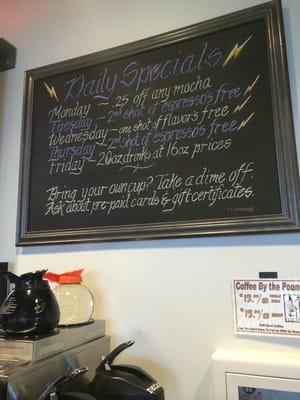 Daily Specials
Monday ~ .25 off any mocha
Tuesday - 2nd shot of espresso's free
Wednesday ~ one shot of flavor's free
Thursday - 2nd shot of espresso's free
Friday ~ 20oz drinks at 16oz prices
Bring your own cup? Take a dime off.
Ask about pre-paid cards & gift certificates.
Coffee By the Poun